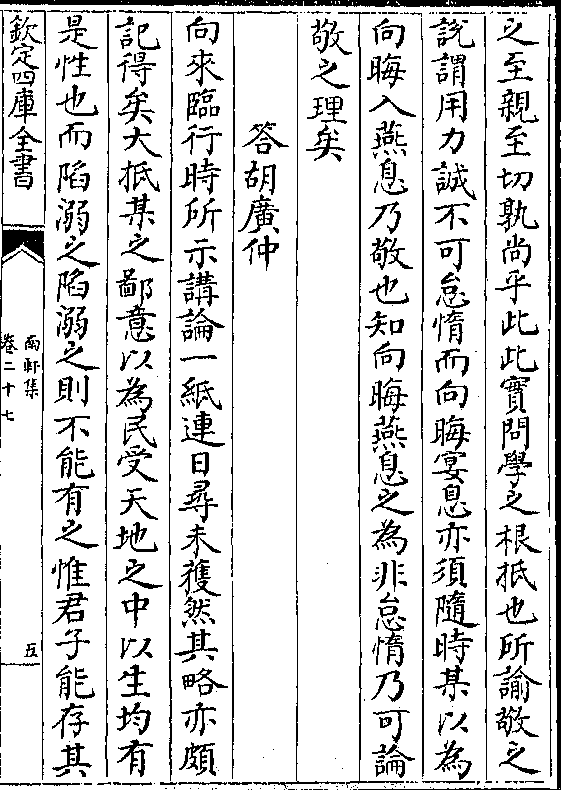 之至親至切孰尚乎此此實問學之根抵也所諭敬之
說謂用力誠不可怠惰而向晦宴息亦須隨時某以為
向晦入燕息乃敬也知向晦燕息之為非怠惰乃可論
敬之理矣
答胡廣仲
向來臨行時所示講論一紙連日尋未獲然其略亦頗
記得矣大抵某之鄙意以為民受天地之中以生均有
是性也而陷溺之陷溺之則不能有之惟君子能存其
欽定四庫全書
南軒集
卷二十七
五